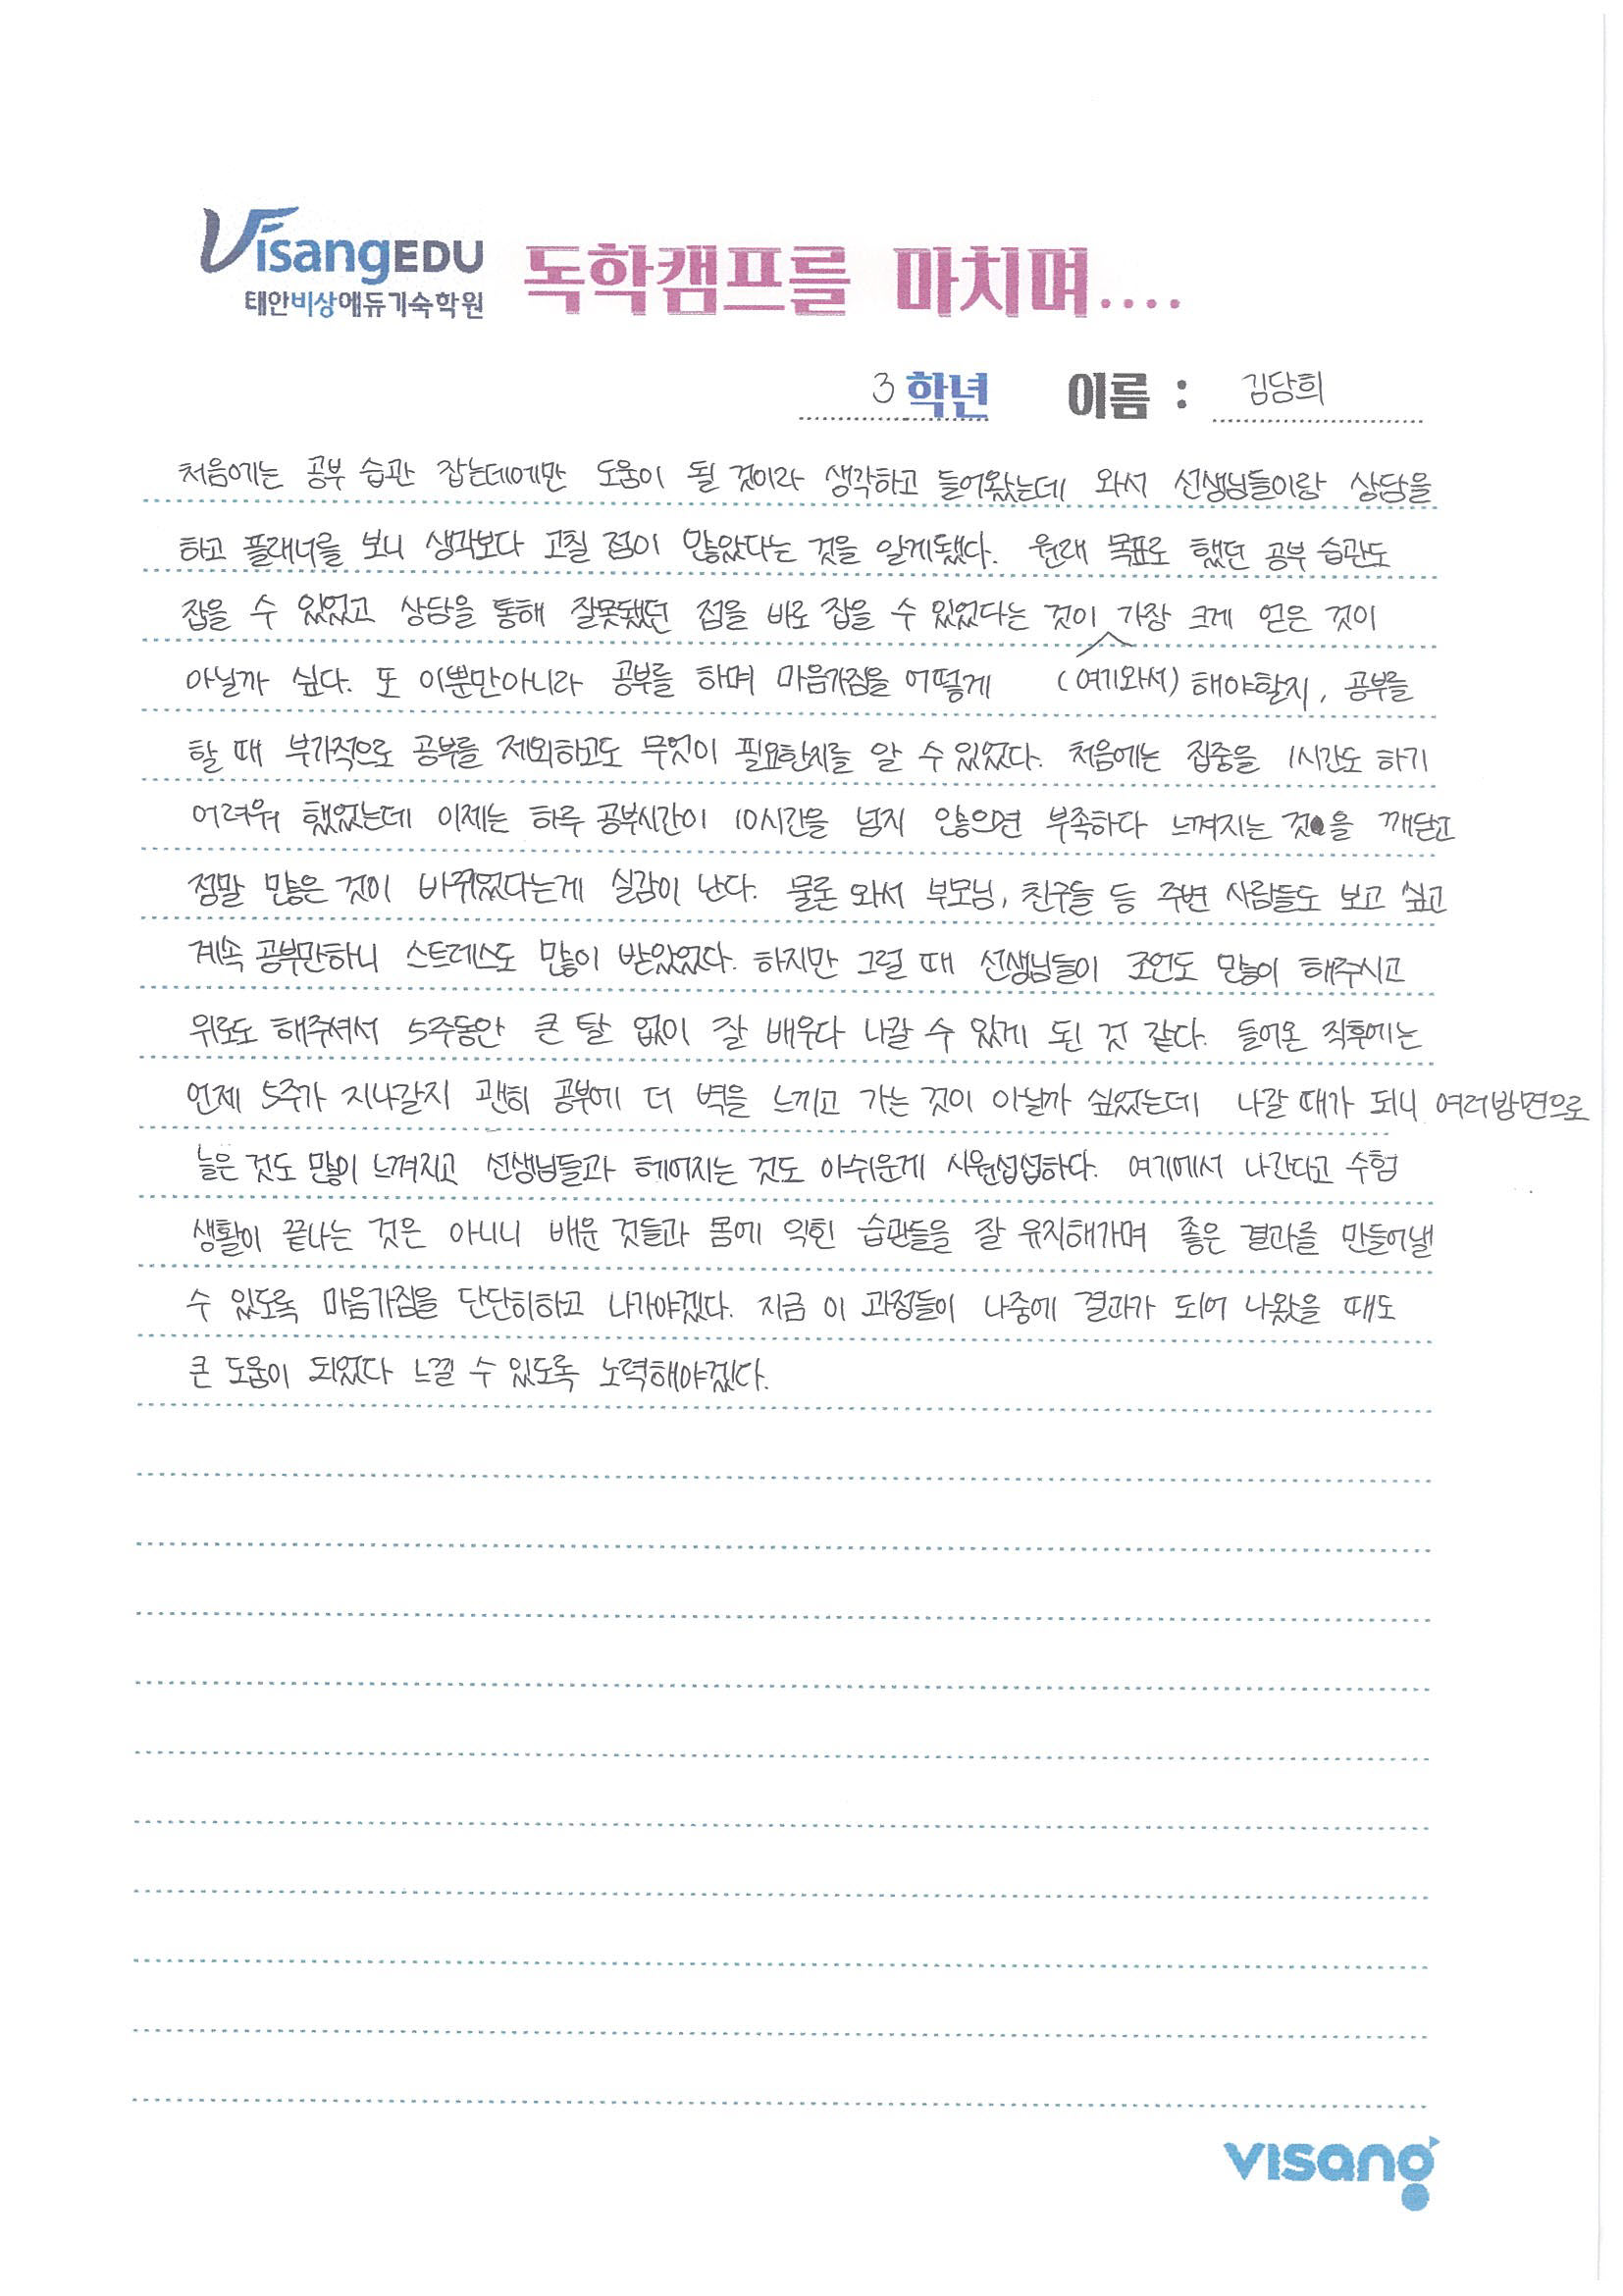 VisangEDU
태안비상에듀기숙학원
독학캠프를 마치며....
3 학년 이름 : 김당희
처음에는 공부 습관 잡는데에만 도움이 될 것이라 생각하고 들어왔는데 와서 선생님들이랑 상담을
하고 플래너를 보니 생각보다 고칠 점이 많았다는 것을 알게됐다. 원래 목표로 했던 공부 습관도
잡을 수 있었고 상담을 통해 잘못됐던 점을 바로 잡을 수 있었다는 것이 가장 크게 얻은 것이
아닐까 싶다. 또 이뿐만아니라 공부를 하며 마음가짐을 어떻게 (여기와서) 해야할지, 공부를
할 때 부가적으로 공부를 제외하고도 무엇이 필요한지를 알 수 있었다. 처음에는 집중을 1시간도 하기
어려워 했었는데 이제는 하루 공부시간이 10시간을 넘지 않으면 부족하다 느껴지는 것을 깨닫고
정말 많은 것이 바뀌었다는게 실감이 난다. 물론 와서 부모님, 친구들 등 주변 사람들도 보고 싶고
계속 공부만하니 스트레스도 많이 받았었다. 하지만 그럴 때 선생님들이 조언도 많이 해주시고
위로도 해주셔서 5주동안 큰 탈 없이 잘 배우다 나갈 수 있게 된 것 같다. 들어온 직후에는
언제 5주가 지나갈지 괜히 공부에 더 벽을 느끼고 가는 것이 아닐까 싶었는데 나갈 때가 되니 여러방면으로
늘은 것도 많이 느껴지고 선생님들과 헤어지는 것도 아쉬운게 시원섭섭하다. 여기에서 나간다고 수험
생활이 끝나는 것은 아니니 배운 것들과 몸에 익힌 습관들을 잘 유지해가며 좋은 결과를 만들어낼
수 있도록 마음가짐을 단단히하고 나가야겠다. 지금 이 과정들이 나중에 결과가 되어 나왔을 때도
큰 도움이 되었다 느낄 수 있도록 노력해야겠다.
visang